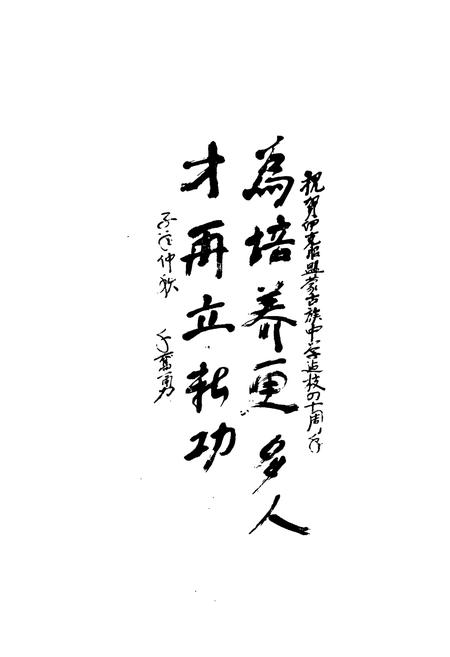 祝贺伊克昭盟蒙古族中学建校四十周年
為培养更多人
才再立新功
仲秋 千奮勇